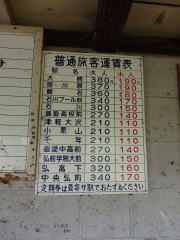 分
普通旅客運賃表
駅名 大人 小人
大鰐 380円 190円
宿川原 370 190
鯖石 360 180
石川プール前 340 170
石川 300 150
義塾高校前 270 140
津軽大沢 210 110
小栗山 210 110
千年 210 110
聖愛中高前 270 140
弘前学院大前 300 150
弘高下 320 160
中央弘前 340 170
定期券は最寄り駅でおたずねください